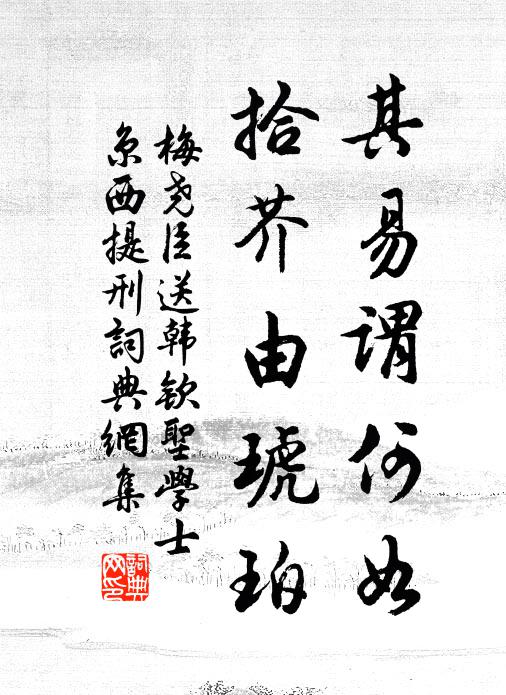 其易谓何如
拾芥由琥珀
梅尧臣送韩钦聖學士
京西提刑詞典網集
詞典
网印